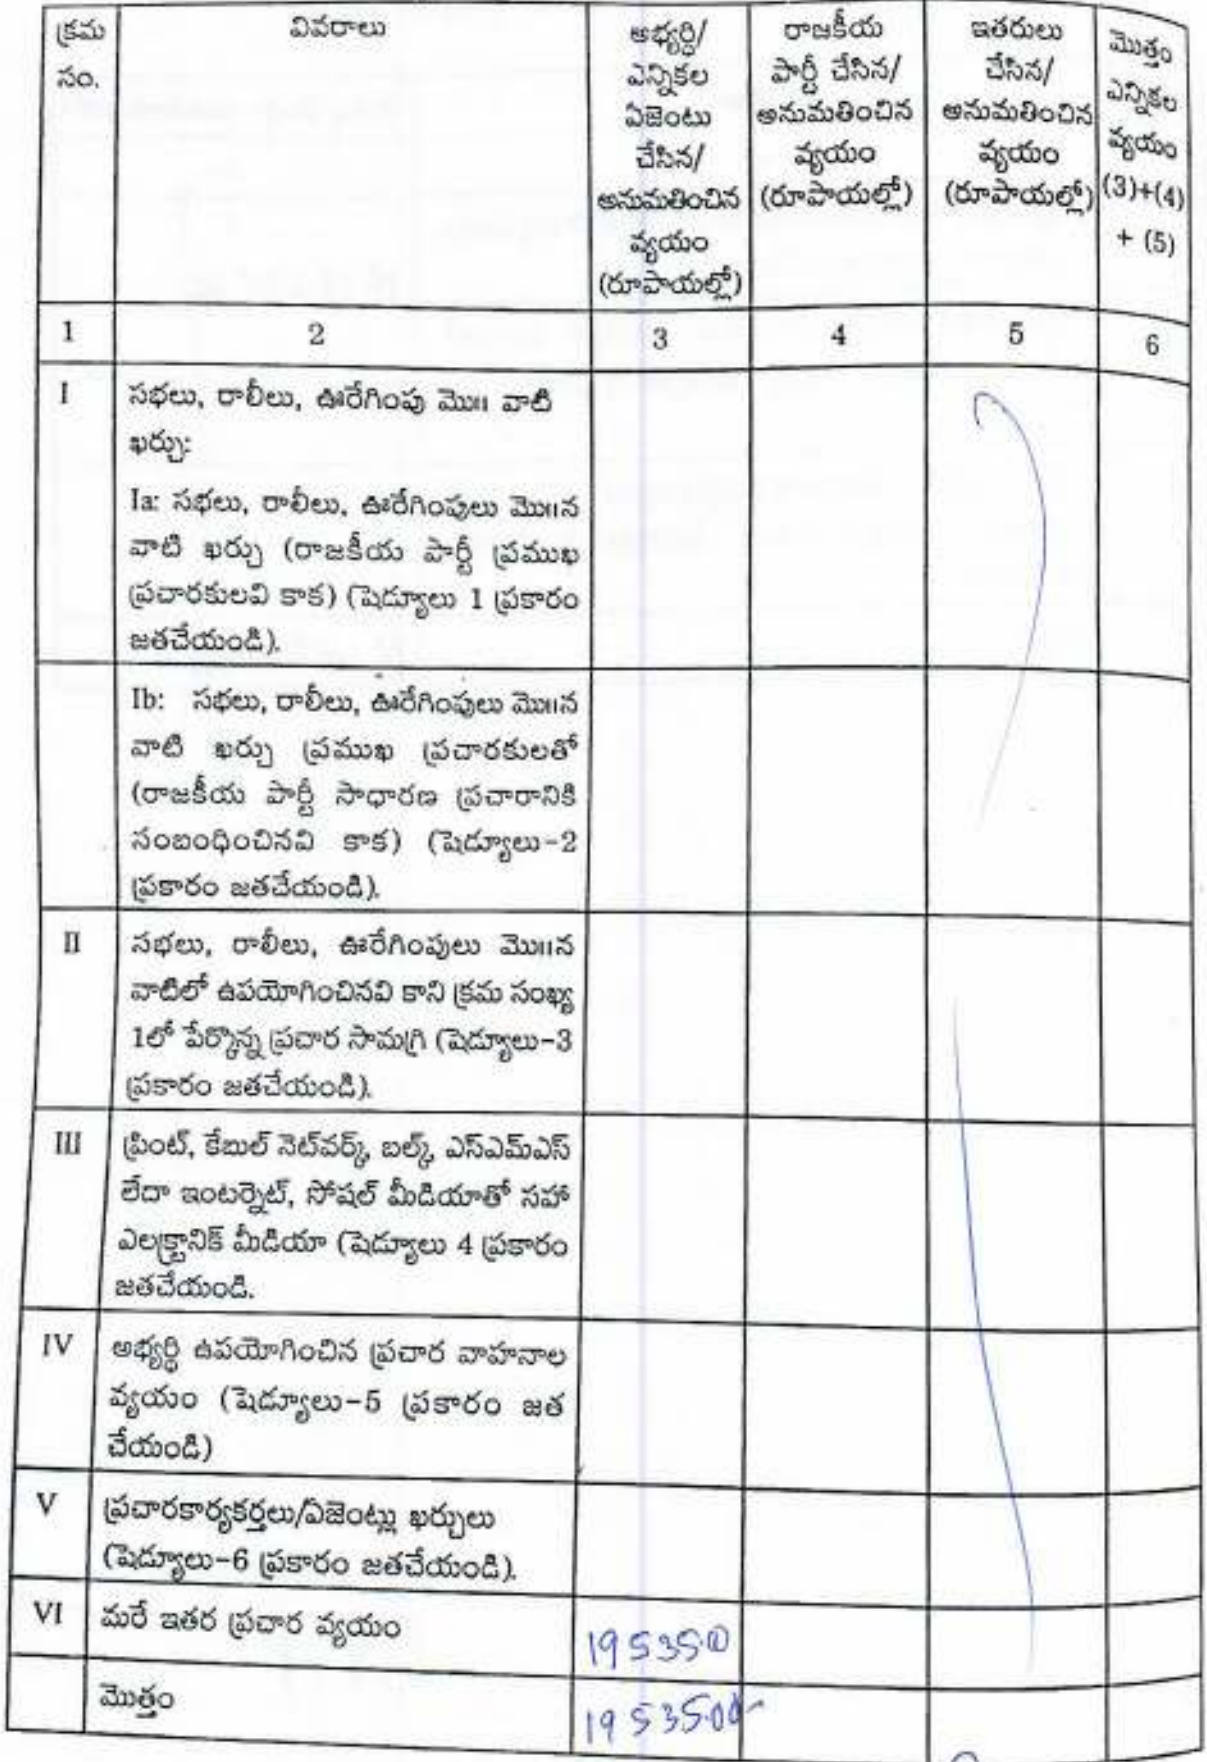 క్రమ సం.
వివరాలు
అభ్యర్థి/
ఎన్నికల
ఏజెంటు
చేసిన/
అనుమతించిన
వ్యయం
(రూపాయల్లో)
రాజకీయ
పార్టీ చేసిన/
అనుమతించిన
వ్యయం
(రూపాయల్లో)
ఇతరులు
చేసిన/
అనుమతించిన
వ్యయం
(రూపాయల్లో)
మొత్తం
ఎన్నికల
వ్యయం
(3)+(4)
+ (5)
1 2 3 4 5 6
I సభలు, రాలీలు, ఊరేగింపు మొ॥ వాటి
ఖర్చు:
Ia: సభలు, రాలీలు, ఊరేగింపులు మొ॥న
వాటి ఖర్చు (రాజకీయ పార్టీ ప్రముఖ
ప్రచారకులవి కాక) (షెడ్యూలు 1 ప్రకారం
జతచేయండి).
Ib: సభలు, రాలీలు, ఊరేగింపులు మొ॥న
వాటి ఖర్చు ప్రముఖ ప్రచారకులతో
(రాజకీయ పార్టీ సాధారణ ప్రచారానికి
సంబంధించినవి కాక) (షెడ్యూలు-2
ప్రకారం జతచేయండి).
II సభలు, రాలీలు, ఊరేగింపులు మొ॥న
వాటిలో ఉపయోగించినవి కాని క్రమ సంఖ్య
1లో పేర్కొన్న ప్రచార సామగ్రి (షెడ్యూలు-3
ప్రకారం జతచేయండి).
III ప్రింట్, కేబుల్ నెట్‌వర్క్, బల్క్, ఎస్ఎమ్ఎస్
లేదా ఇంటర్నెట్, సోషల్ మీడియాతో సహా
ఎలక్ట్రానిక్ మీడియా (షెడ్యూలు 4 ప్రకారం
జతచేయండి.
IV అభ్యర్థి ఉపయోగించిన ప్రచార వాహనాల
వ్యయం (షెడ్యూలు-5 ప్రకారం జత
చేయండి)
V ప్రచారకార్యకర్తలు/ఏజెంట్లు ఖర్చులు
(షెడ్యూలు-6 ప్రకారం జతచేయండి).
VI మరే ఇతర ప్రచార వ్యయం
మొత్తం